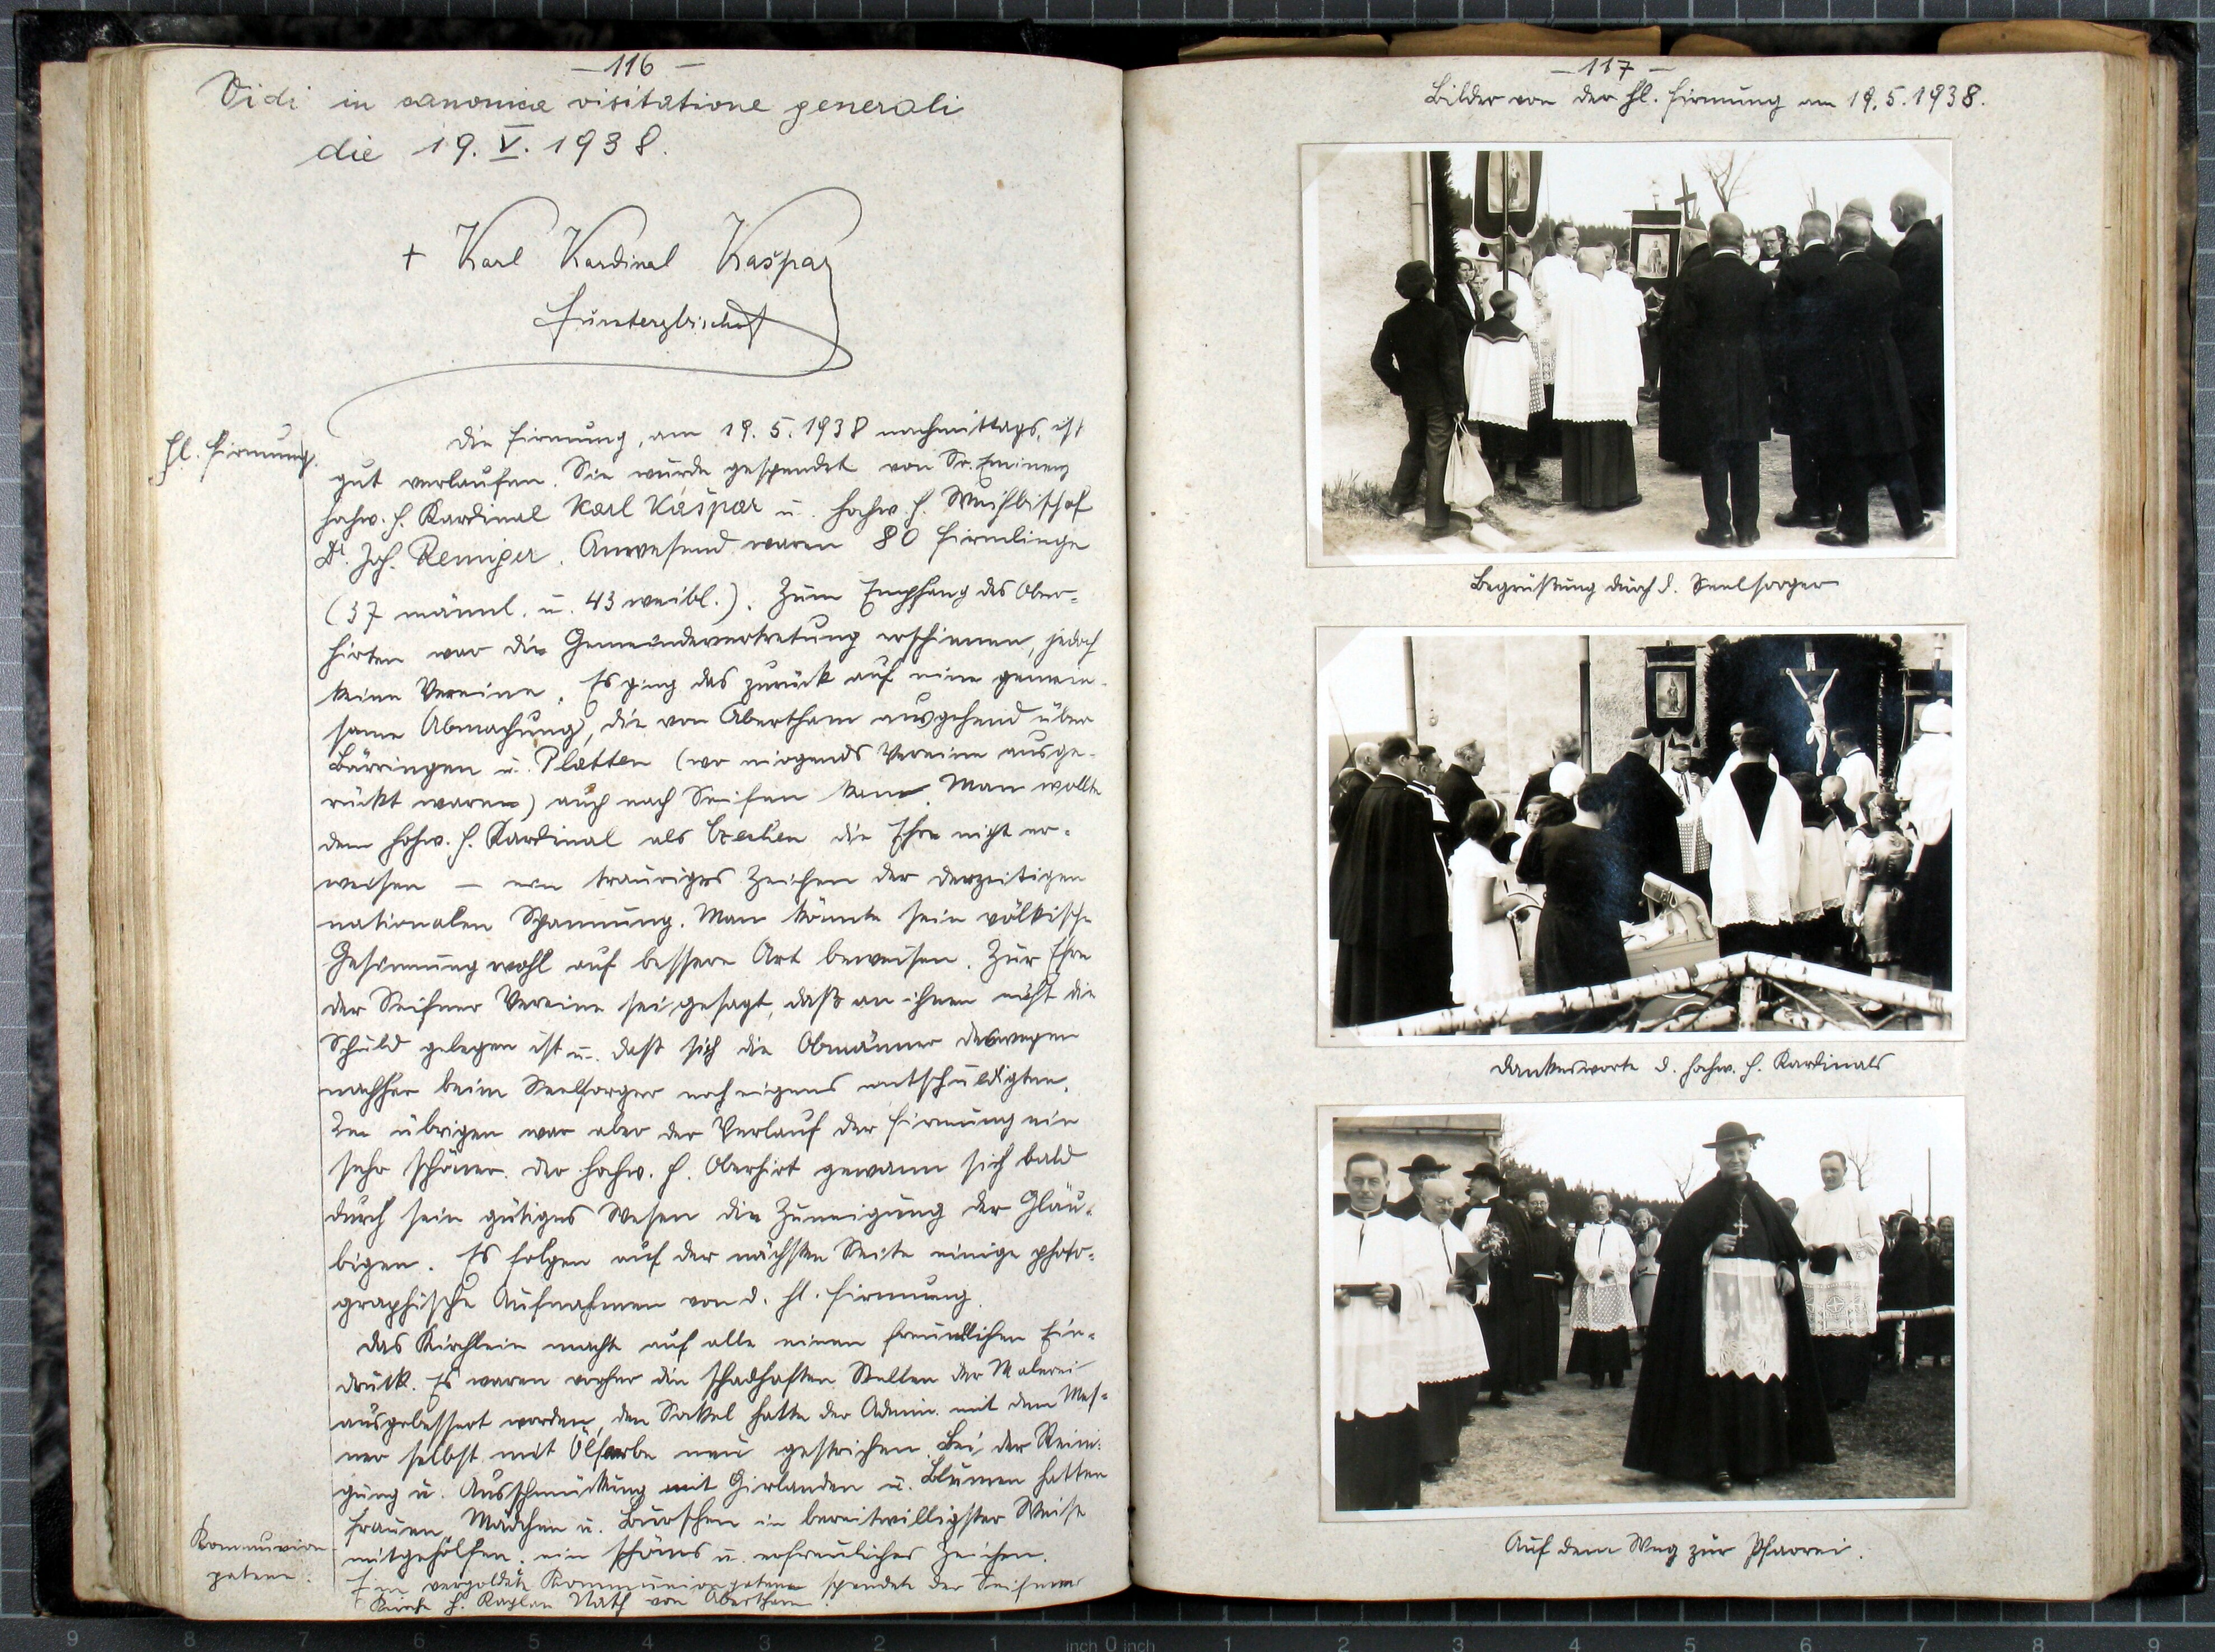 — 116 —
Vidi in canonica visitatione generali
die 19. V. 1938.
+ Karl Kardinal Kašpar
Fürsterzbischof
hl. Firmung.
Die Firmung, am 19. 5. 1938 nachmittags, ist
gut verlaufen. Sie wurde gespendet von Sr. Eminenz
hochw. H. Kardinal Karl Kašpar u. hochw. H. Weihbischof
Dr. Joh. Remiger. Anwesend waren 80 Firmlinge
(37 männl. u. 43 weibl.). Zum Empfang des Ober-
hirten war die Gemeindevertretung erschienen, jedoch
keine Vereine. Es ging das zurück auf eine gemein-
same Abmachung, die von Abertham ausgehend über
Bärringen u. Platten (wo nirgends Vereine ausge-
rückt waren) auch nach Seifen kam. Man wollte
dem hochw. H. Kardinal als Czechen die Ehre nicht er-
weisen — ein trauriges Zeichen der derzeitigen
nationalen Spannung. Man könnte sein völkische
Gesinnung wohl auf bessere Art beweisen. Zur Ehre
der Seifner Vereine sei gesagt, daß an ihnen nicht die
Schuld gelegen ist u. daß sich die Obmänner deswegen
nachher beim Seelsorger noch eigens entschuldigten.
Im übrigen war aber der Verlauf der Firmung ein
sehr schöner. Der hochw. H. Oberhirt gewann sich bald
durch sein gütiges Wesen die Zuneigung der Gläu-
bigen. Es folgen auf der nächsten Seite einige photo-
graphische Aufnahmen von d. hl. Firmung.
Das Kirchlein macht auf alle einen freundlichen Ein-
druck. Es waren vorher die schadhaften Stellen der Malerei
ausgebessert worden, den Sockel hatte der Admin. mit dem Mes-
ner selbst mit Ölfarbe neu gestrichen. Bei der Reini-
gung u. Ausschmückung mit Girlanden u. Blumen hatten
Frauen, Mädchen u. Burschen in bereitwilligster Weise
mitgeholfen. ein schönes u. erfreuliches Zeichen.
Kommunion-
patene.
Eine vergoldete Kommunionpatene spendete der Seifner
Kirche H. Kaplan Nath von Abertham.
— 117 —
Bilder von der hl. Firmung am 19. 5. 1938.
Begrüßung durch d. Seelsorger
Dankesworte d. hochw. H. Kardinals
Auf dem Weg zur Pfarrei.
9 8 7 6 5 4 3 2 1 inch 0 inch 1 2 3 4 5 6 7 8 9